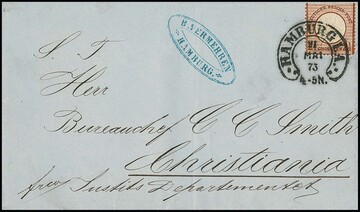 HAERMEHREN
HAMBURG.
HAMBURG E.A.
21
MAI
73
4-5N.
S. T.
Herr
Bureauchef C C Smith
Christiania
Justits Departementet